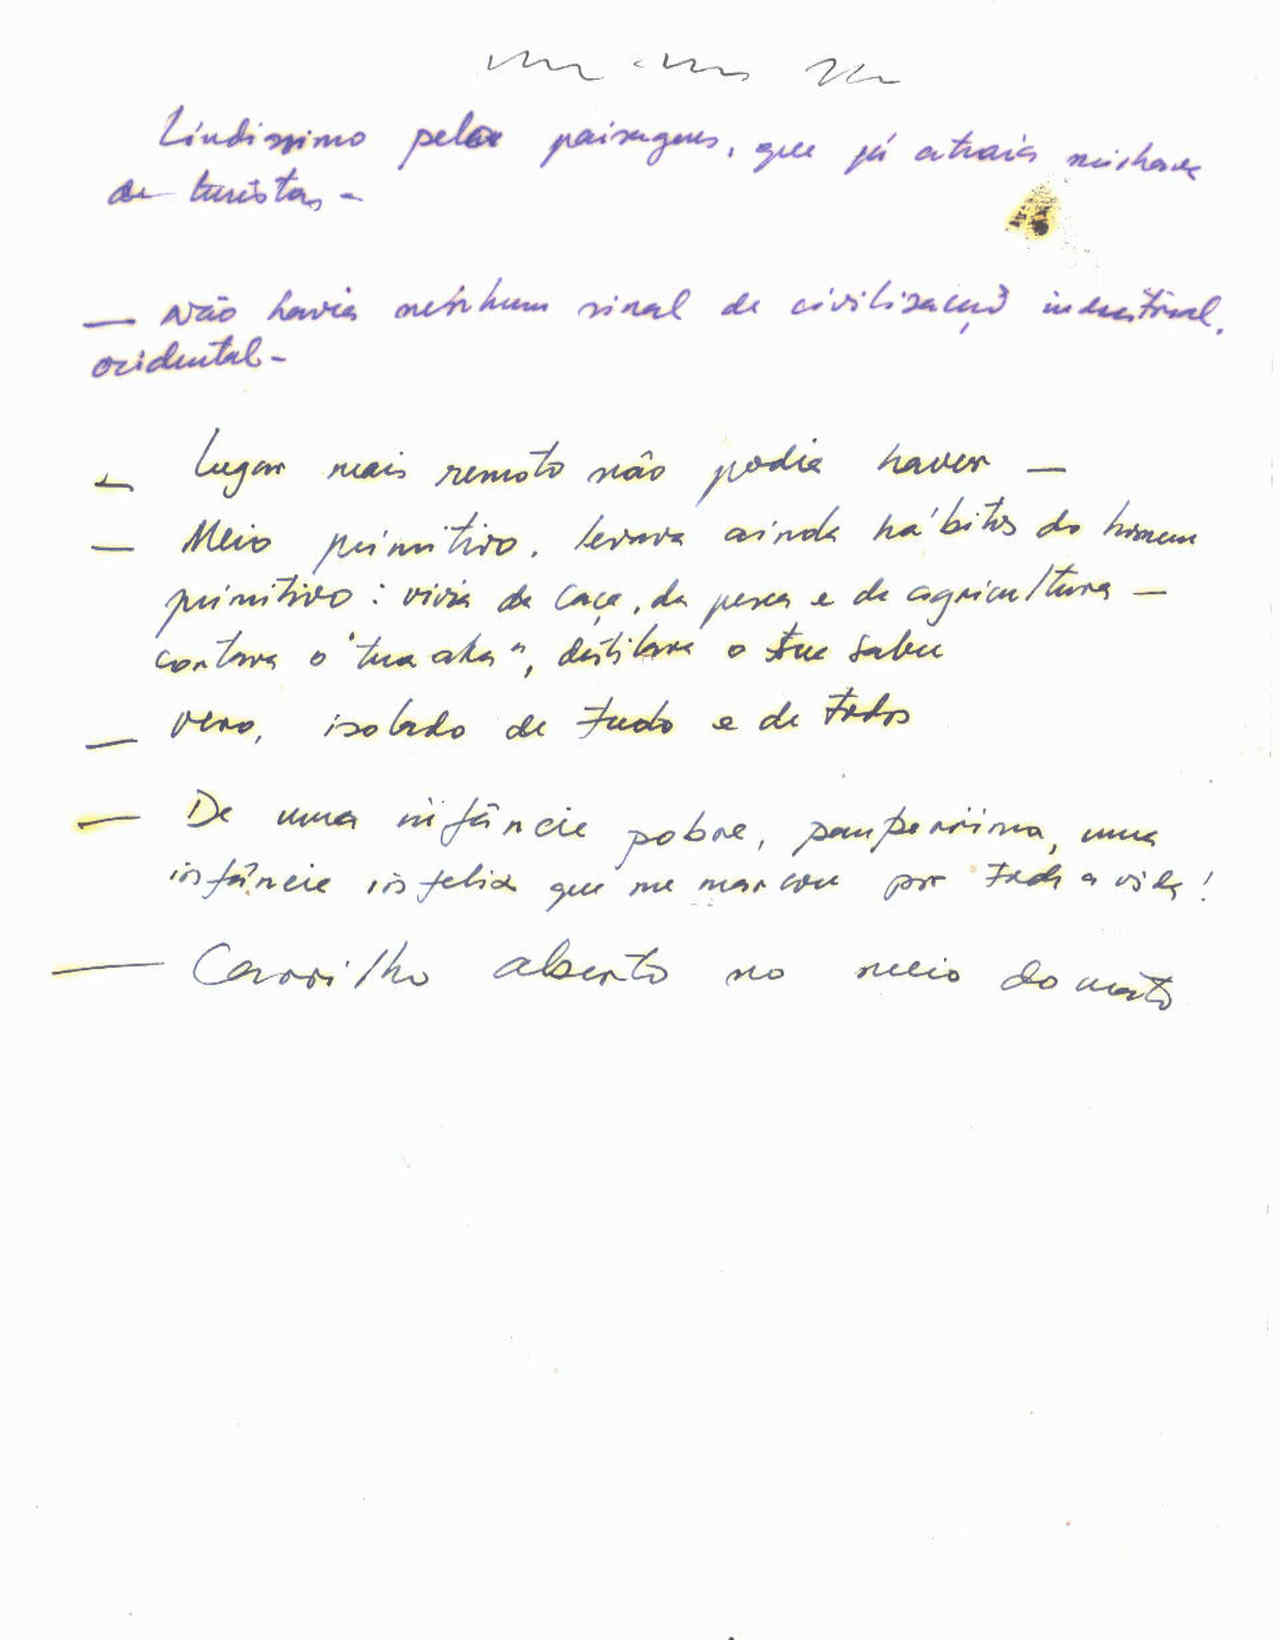 Lindissimo pelas paisagens, que já atraía milhares
de turistas -
— Não havia nenhum sinal de civilização industrial,
ocidental -
— Lugar mais remoto não podia haver —
— Meio primitivo, levava ainda hábitos do homem
primitivo: vivia da caça, da pesca e da agricultura —
cortava o "tua aka", destilava o tua sabu
— Vero, isolado de tudo e de todos
— De uma infância pobre, pauperrima, uma
infância infeliz que me marcou por toda a vida!
— Carrilho aberto no meio do mato